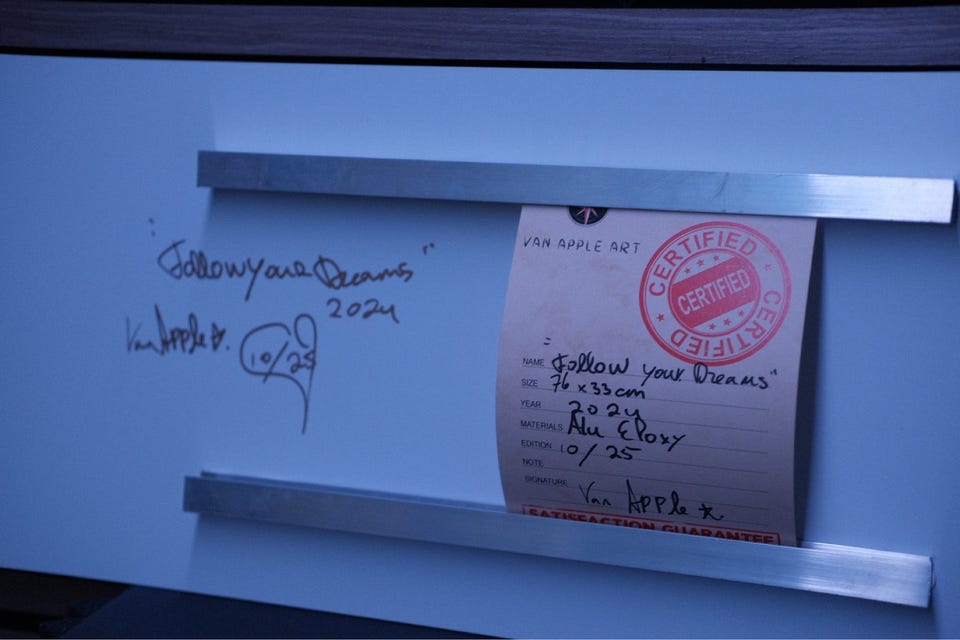 "Follow your Dreams"
2024
Van Apple
10/25
VAN APPLE ART
CERTIFIED
CERTIFIED
CERTIFIED
CERTIFIED
NAME "Follow your Dreams"
SIZE 76 x 33 cm
YEAR 2024
MATERIALS Alu Epoxy
EDITION 10/25
NOTE
SIGNATURE Van Apple
SATISFACTION GUARANTEE